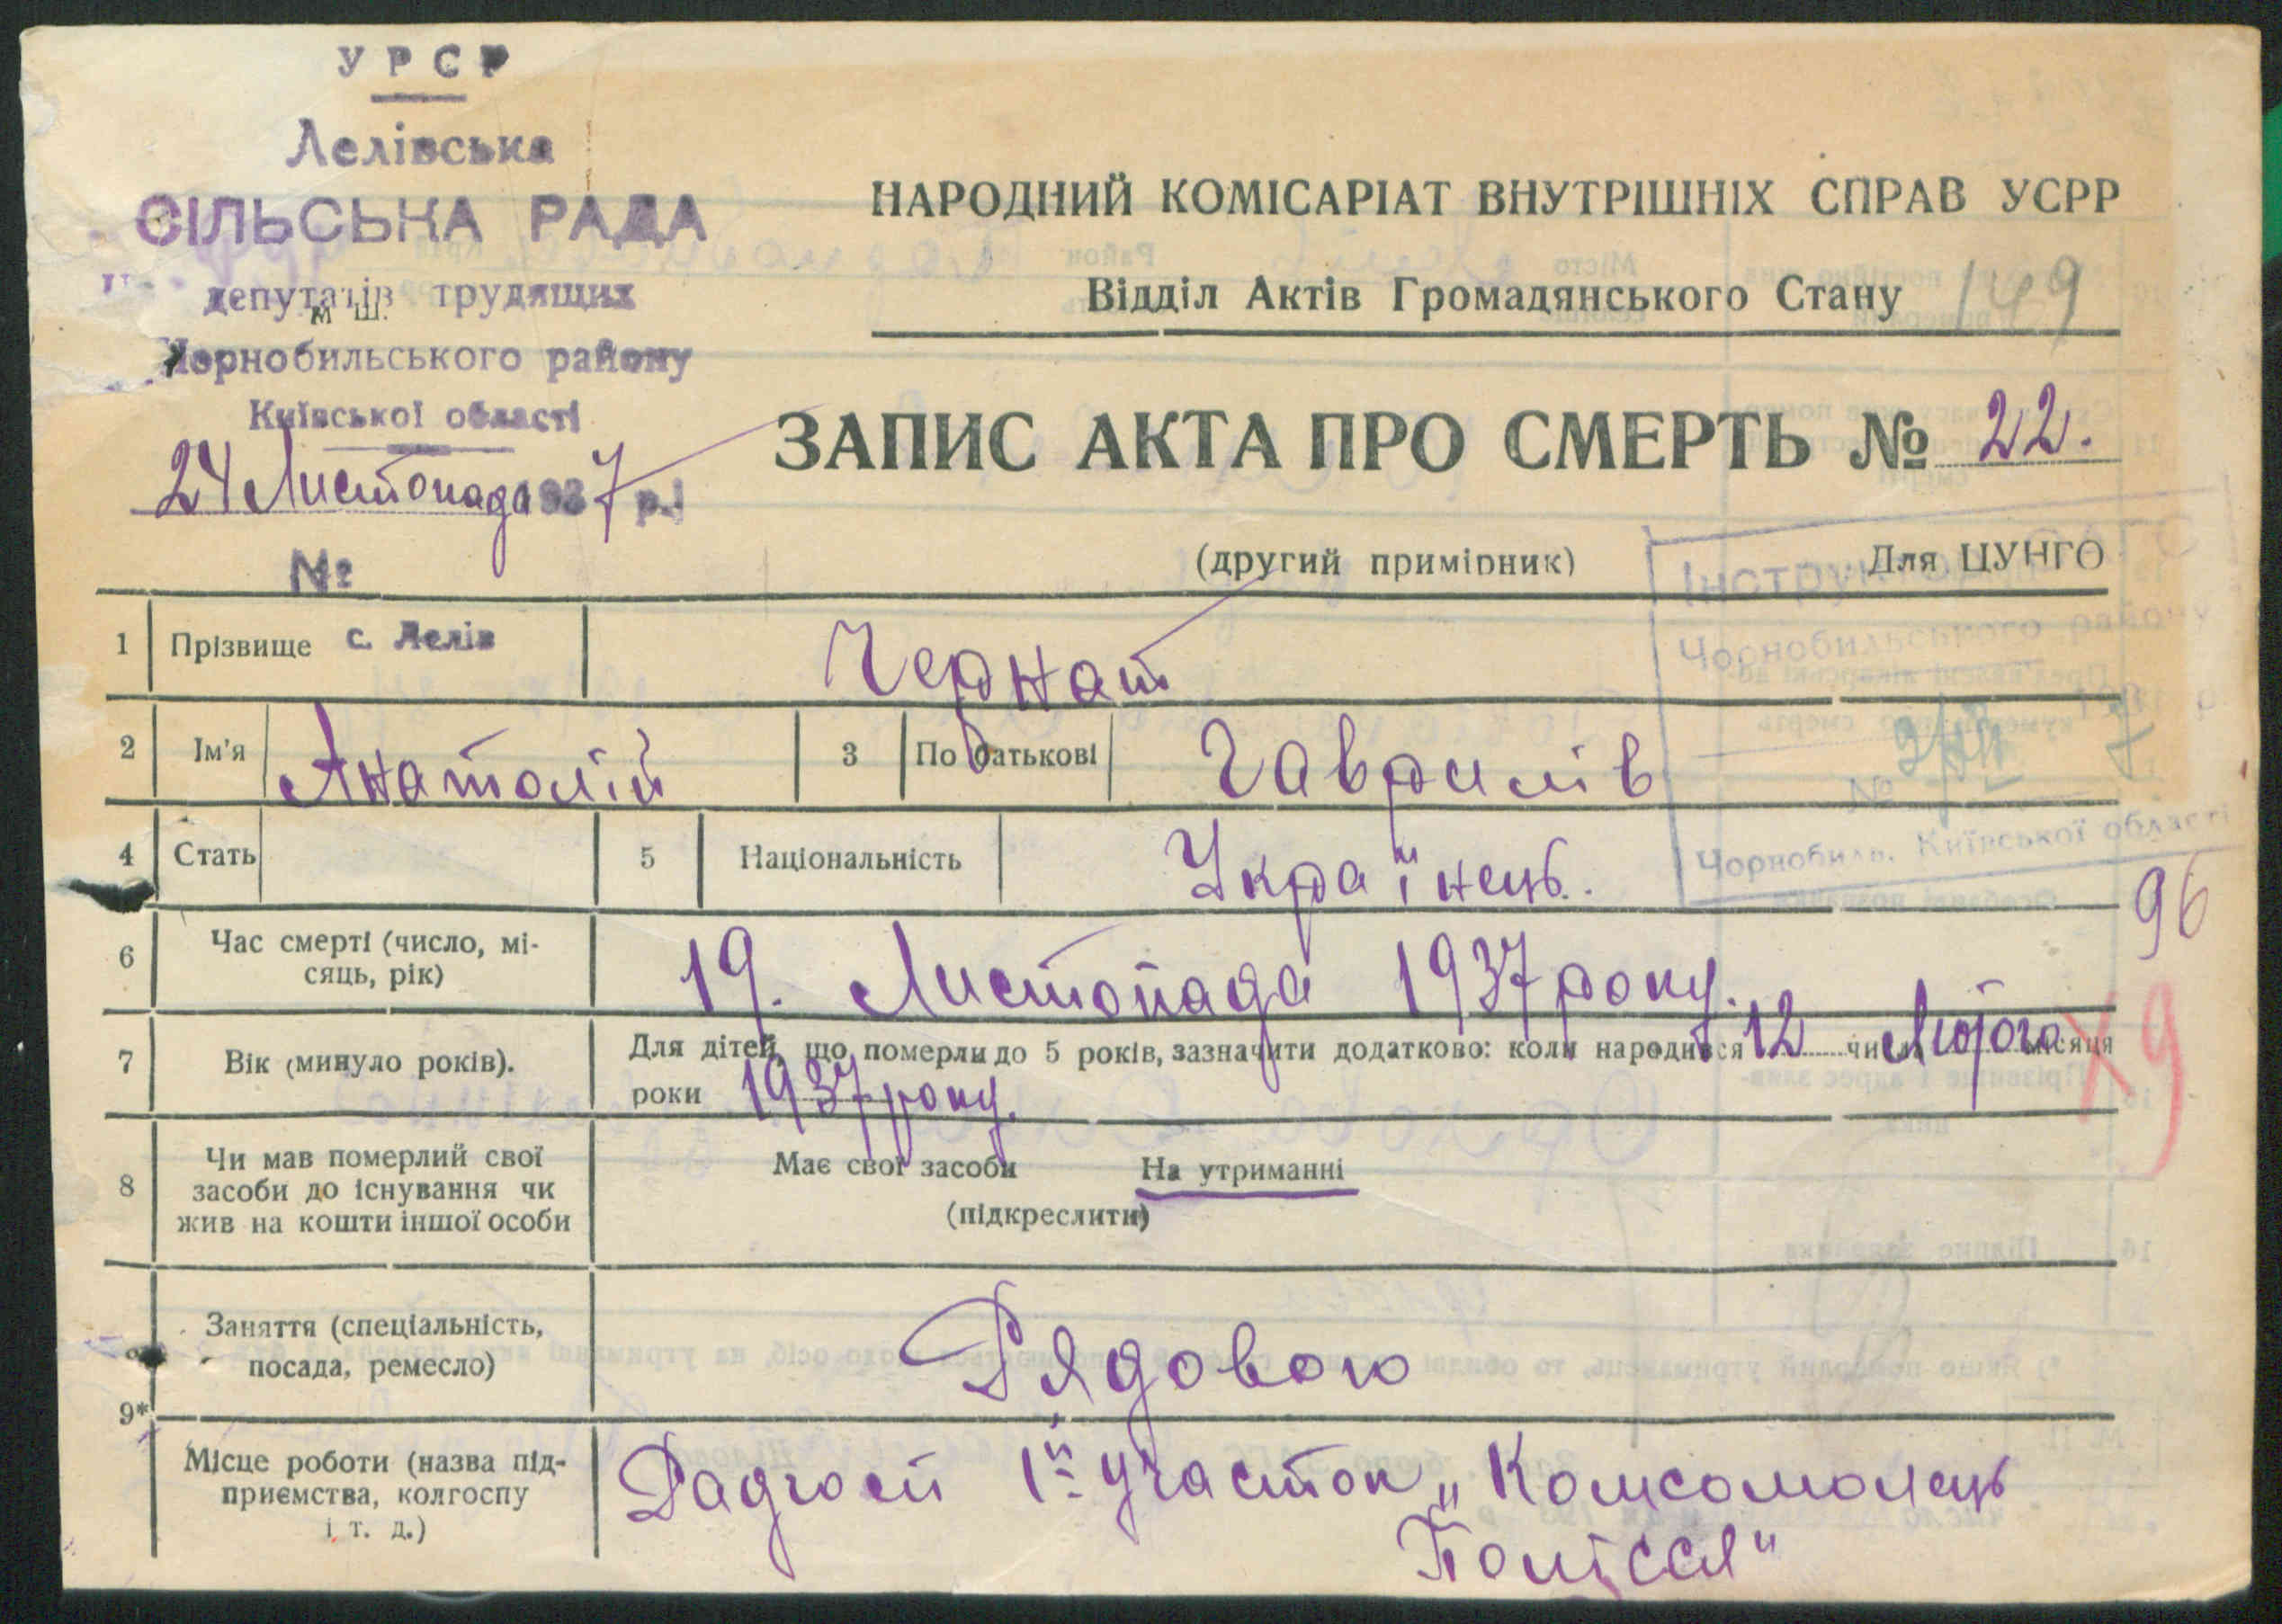 УРСР
Лелівська
СІЛЬСЬКА РАДА
депутатів трудящих
Чорнобильського району
Київської області
24 Листопада 1937 р.
№
с. Лелів
НАРОДНИЙ КОМІСАРІАТ ВНУТРІШНІХ СПРАВ УСРР
Відділ Актів Громадянського Стану 149
ЗАПИС АКТА ПРО СМЕРТЬ № 22.
(другий примірник) Для ЦУНГО
Чорнобильського району
Чорнобиль, Київської області
1 Прізвище Чернат
2 Ім'я Анатолій 3 По батькові Гаврилів
4 Стать 5 Національність Українець.
96
6 Час смерті (число, мі-
сяць, рік) 19. Листопада 1937 року.
7 Вік (минуло років). Для дітей, що померли до 5 років, зазначити додатково: коли народився 12 числа Лютого місяця
роки 1937 року.
8 Чи мав померлий свої
засоби до існування чи
жив на кошти іншої особи
Має свої засоби На утриманні
(підкреслити)
9* Заняття (спеціальність,
посада, ремесло) Рядовою
Місце роботи (назва під-
приємства, колгоспу
і т. д.)
Радгосп 1й участок „Комсомолець
Полісся"